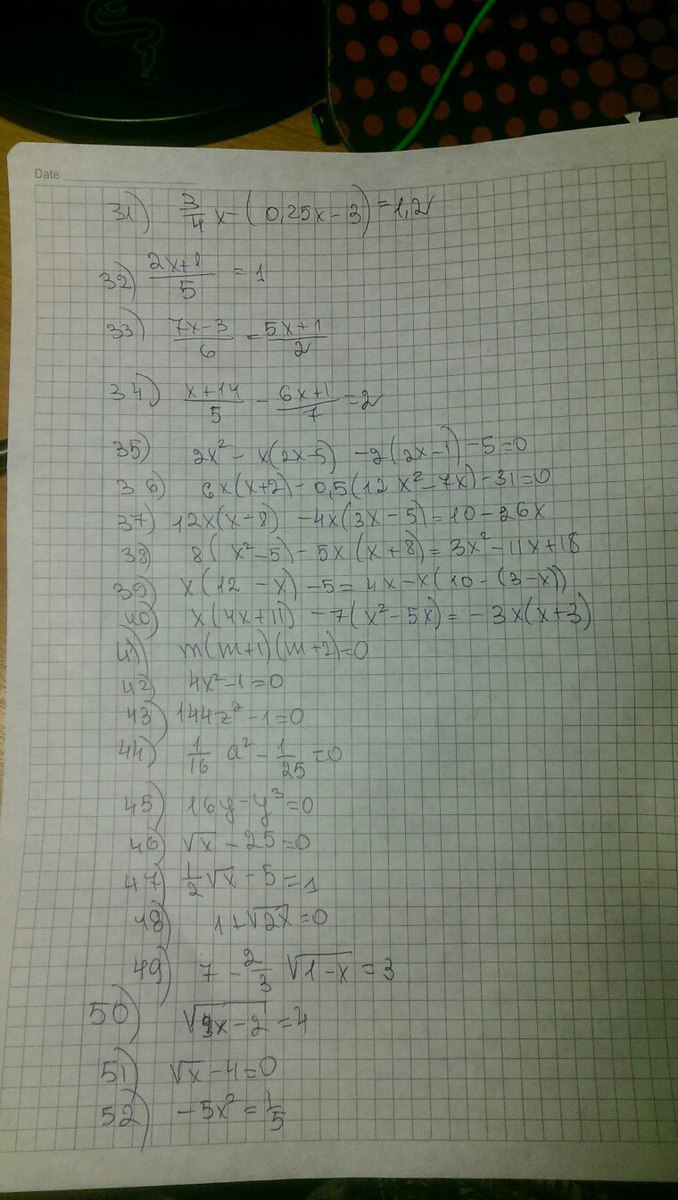 Date
31) 3/4 x - (0,25x - 3) = 1,2
32) (2x+1)/5 = 1
33) (7x-3)/6 = (5x+1)/2
34) (x+14)/5 - (6x+1)/7 = 2
35) 2x² - x(2x-5) - 2(2x-1) - 5 = 0
36) 6x(x+2) - 0,5(12x² - 7x) - 31 = 0
37) 12x(x-8) - 4x(3x-5) = 10 - 26x
38) 8(x²-5) - 5x(x+8) = 3x² - 11x + 18
39) x(12-x) - 5 = 4x - x(10-(3-x))
40) x(4x+11) - 7(x²-5x) = -3x(x+3)
41) m(m+1)(m+2) = 0
42) 4x² - 1 = 0
43) 144z² - 1 = 0
44) 1/16 a² - 1/25 = 0
45) 16y - y³ = 0
46) √x - 25 = 0
47) 1/2 √x - 5 = 1
48) 1 + √2x = 0
49) 7 - 2/3 √1-x = 3
50) √3x-2 = 4
51) √x - 4 = 0
52) -5x² = 1/5